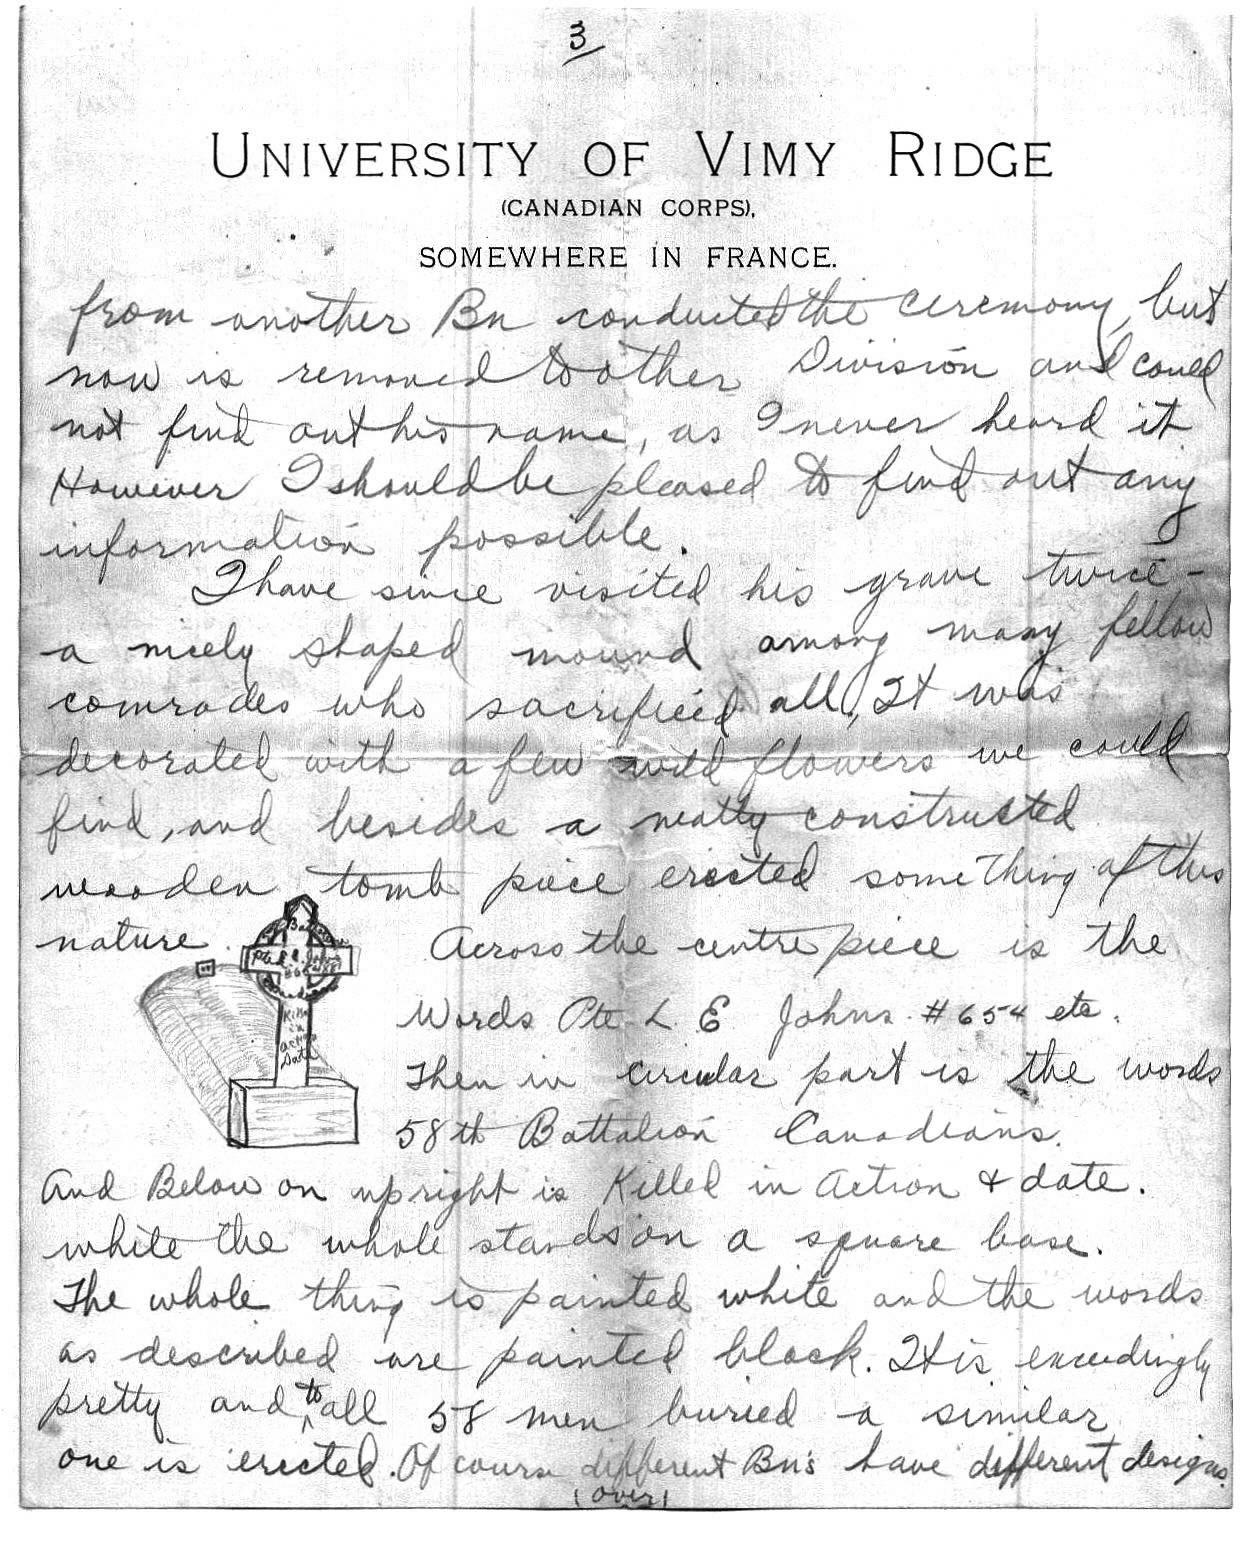 3
UNIVERSITY OF VIMY RIDGE
(CANADIAN CORPS),
SOMEWHERE IN FRANCE.
from another Bn conducted the ceremony, but
now is removed to other Division and could
not find out his name, as I never heard it
However I should be pleased to find out any
information possible.
I have since visited his grave twice -
a nicely shaped mound among many fellow
comrades who sacrificed all, It was
decorated with a few wild flowers we could
find, and besides a neatly constructed
wooden tomb piece erected something of this
nature.
Across the centre piece is the
Words Pte L E Johns #654 etc.
Then in circular part is the words
58th Battalion Canadians.
And Below on upright is Killed in Action & date.
white the whole stands on a square base.
The whole thing is painted white and the words
as described are painted black. It is exceedingly
pretty and to all 58 men buried a similar
one is erected. Of course different Bn's have different designs.
(over)
Killed
in
action
Date